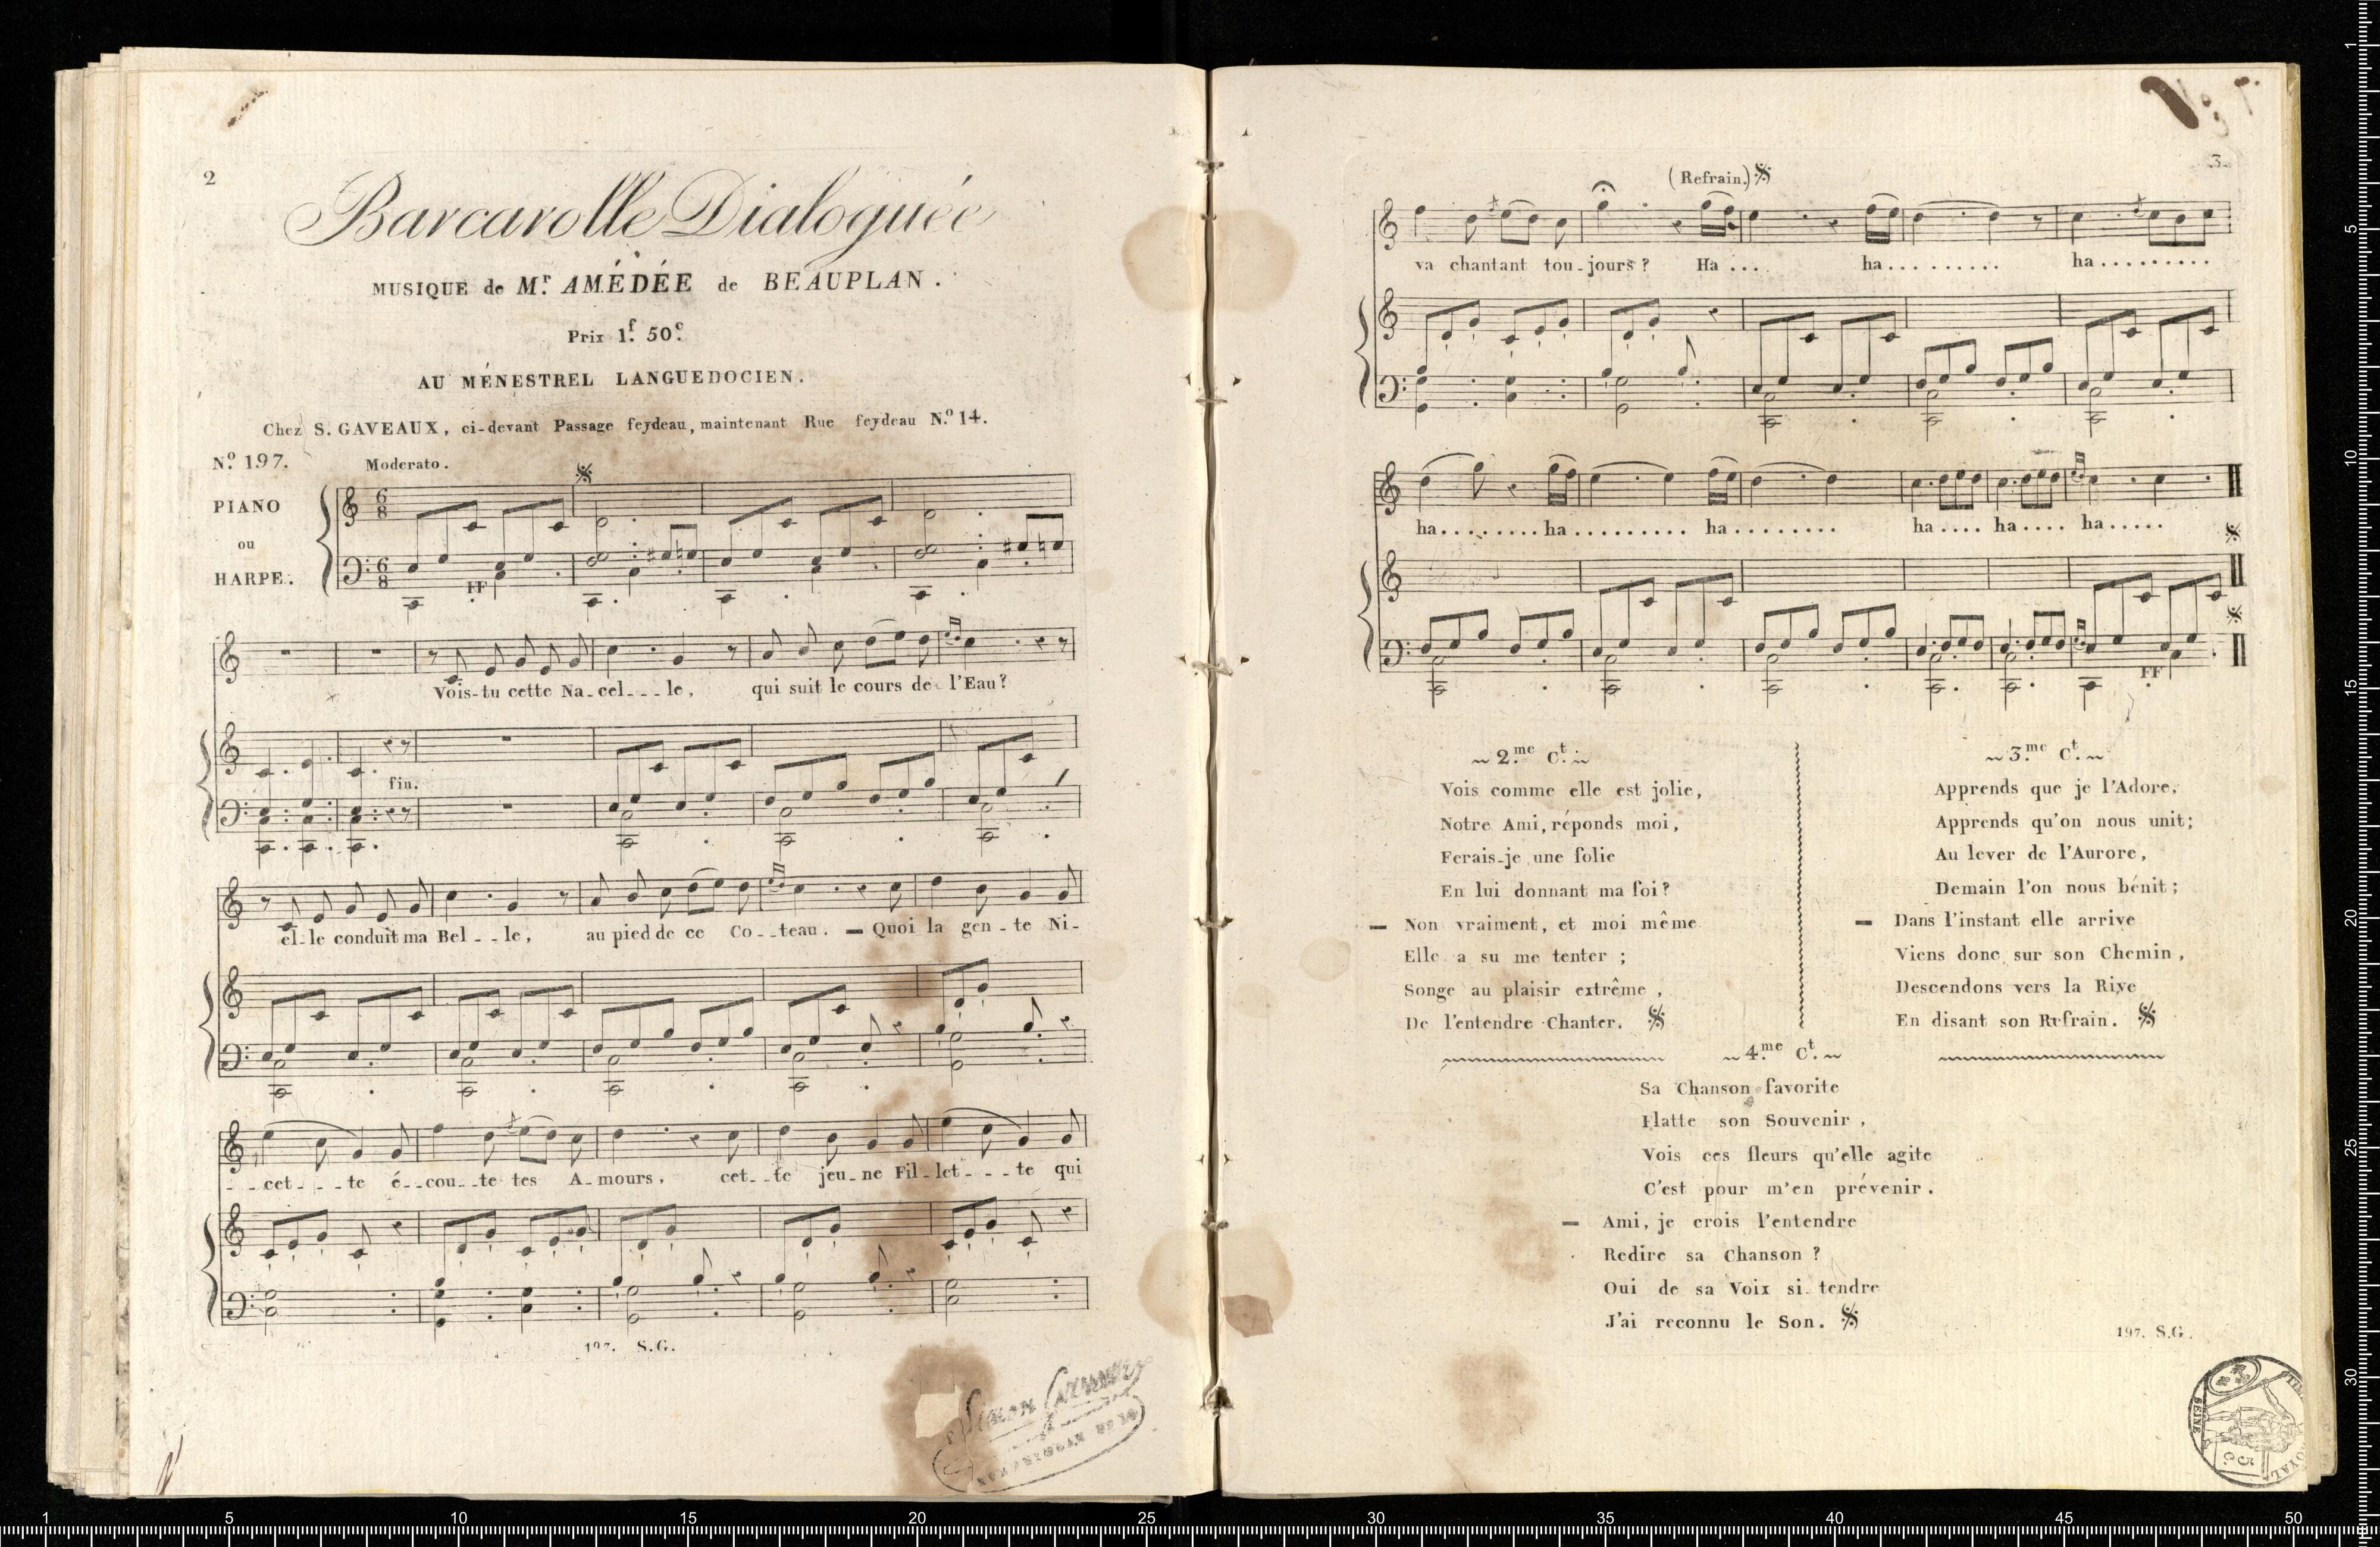 2
Barcarolle Dialoguée
MUSIQUE de Mr. AMÉDÉE de BEAUPLAN.
Prix 1f. 50c.
AU MÉNESTREL LANGUEDOCIEN.
Chez S. GAVEAUX, ci-devant Passage feydeau, maintenant Rue feydeau No. 14.
No. 197.
Moderato.
PIANO
ou
HARPE.
6
8
6
8
FF
Vois-tu cette Na-cel---le, qui suit le cours de l'Eau?
fin.
el-le conduit ma Bel--le, au pied de ce Co--teau. — Quoi la gen-te Ni-
--cet---te é--cou--te tes A-mours, cet--te jeu-ne Fil-let---te qui
197. S.G.
3
(Refrain.)
va chantant tou-jours? Ha... ha......... ha.........
ha........ha......... ha......... ha.... ha.... ha.....
FF
~ 2.me Ct. ~
Vois comme elle est jolie,
Notre Ami, réponds moi,
Ferais-je une folie
En lui donnant ma foi?
— Non vraiment, et moi même
Elle a su me tenter ;
Songe au plaisir extrême ,
De l'entendre Chanter.
~ 3.me Ct. ~
Apprends que je l'Adore,
Apprends qu'on nous unit;
Au lever de l'Aurore,
Demain l'on nous bénit ;
— Dans l'instant elle arrive
Viens donc sur son Chemin ,
Descendons vers la Rive
En disant son Refrain.
~ 4.me Ct. ~
Sa Chanson favorite
Flatte son Souvenir ,
Vois ces fleurs qu'elle agite
C'est pour m'en prévenir.
— Ami, je crois l'entendre
Redire sa Chanson ?
Oui de sa Voix si tendre
J'ai reconnu le Son.
197. S.G.
SEINE
5
c.
1 5 10 15 20 25 30 35 40 45 50
1
5
10
15
20
25
30